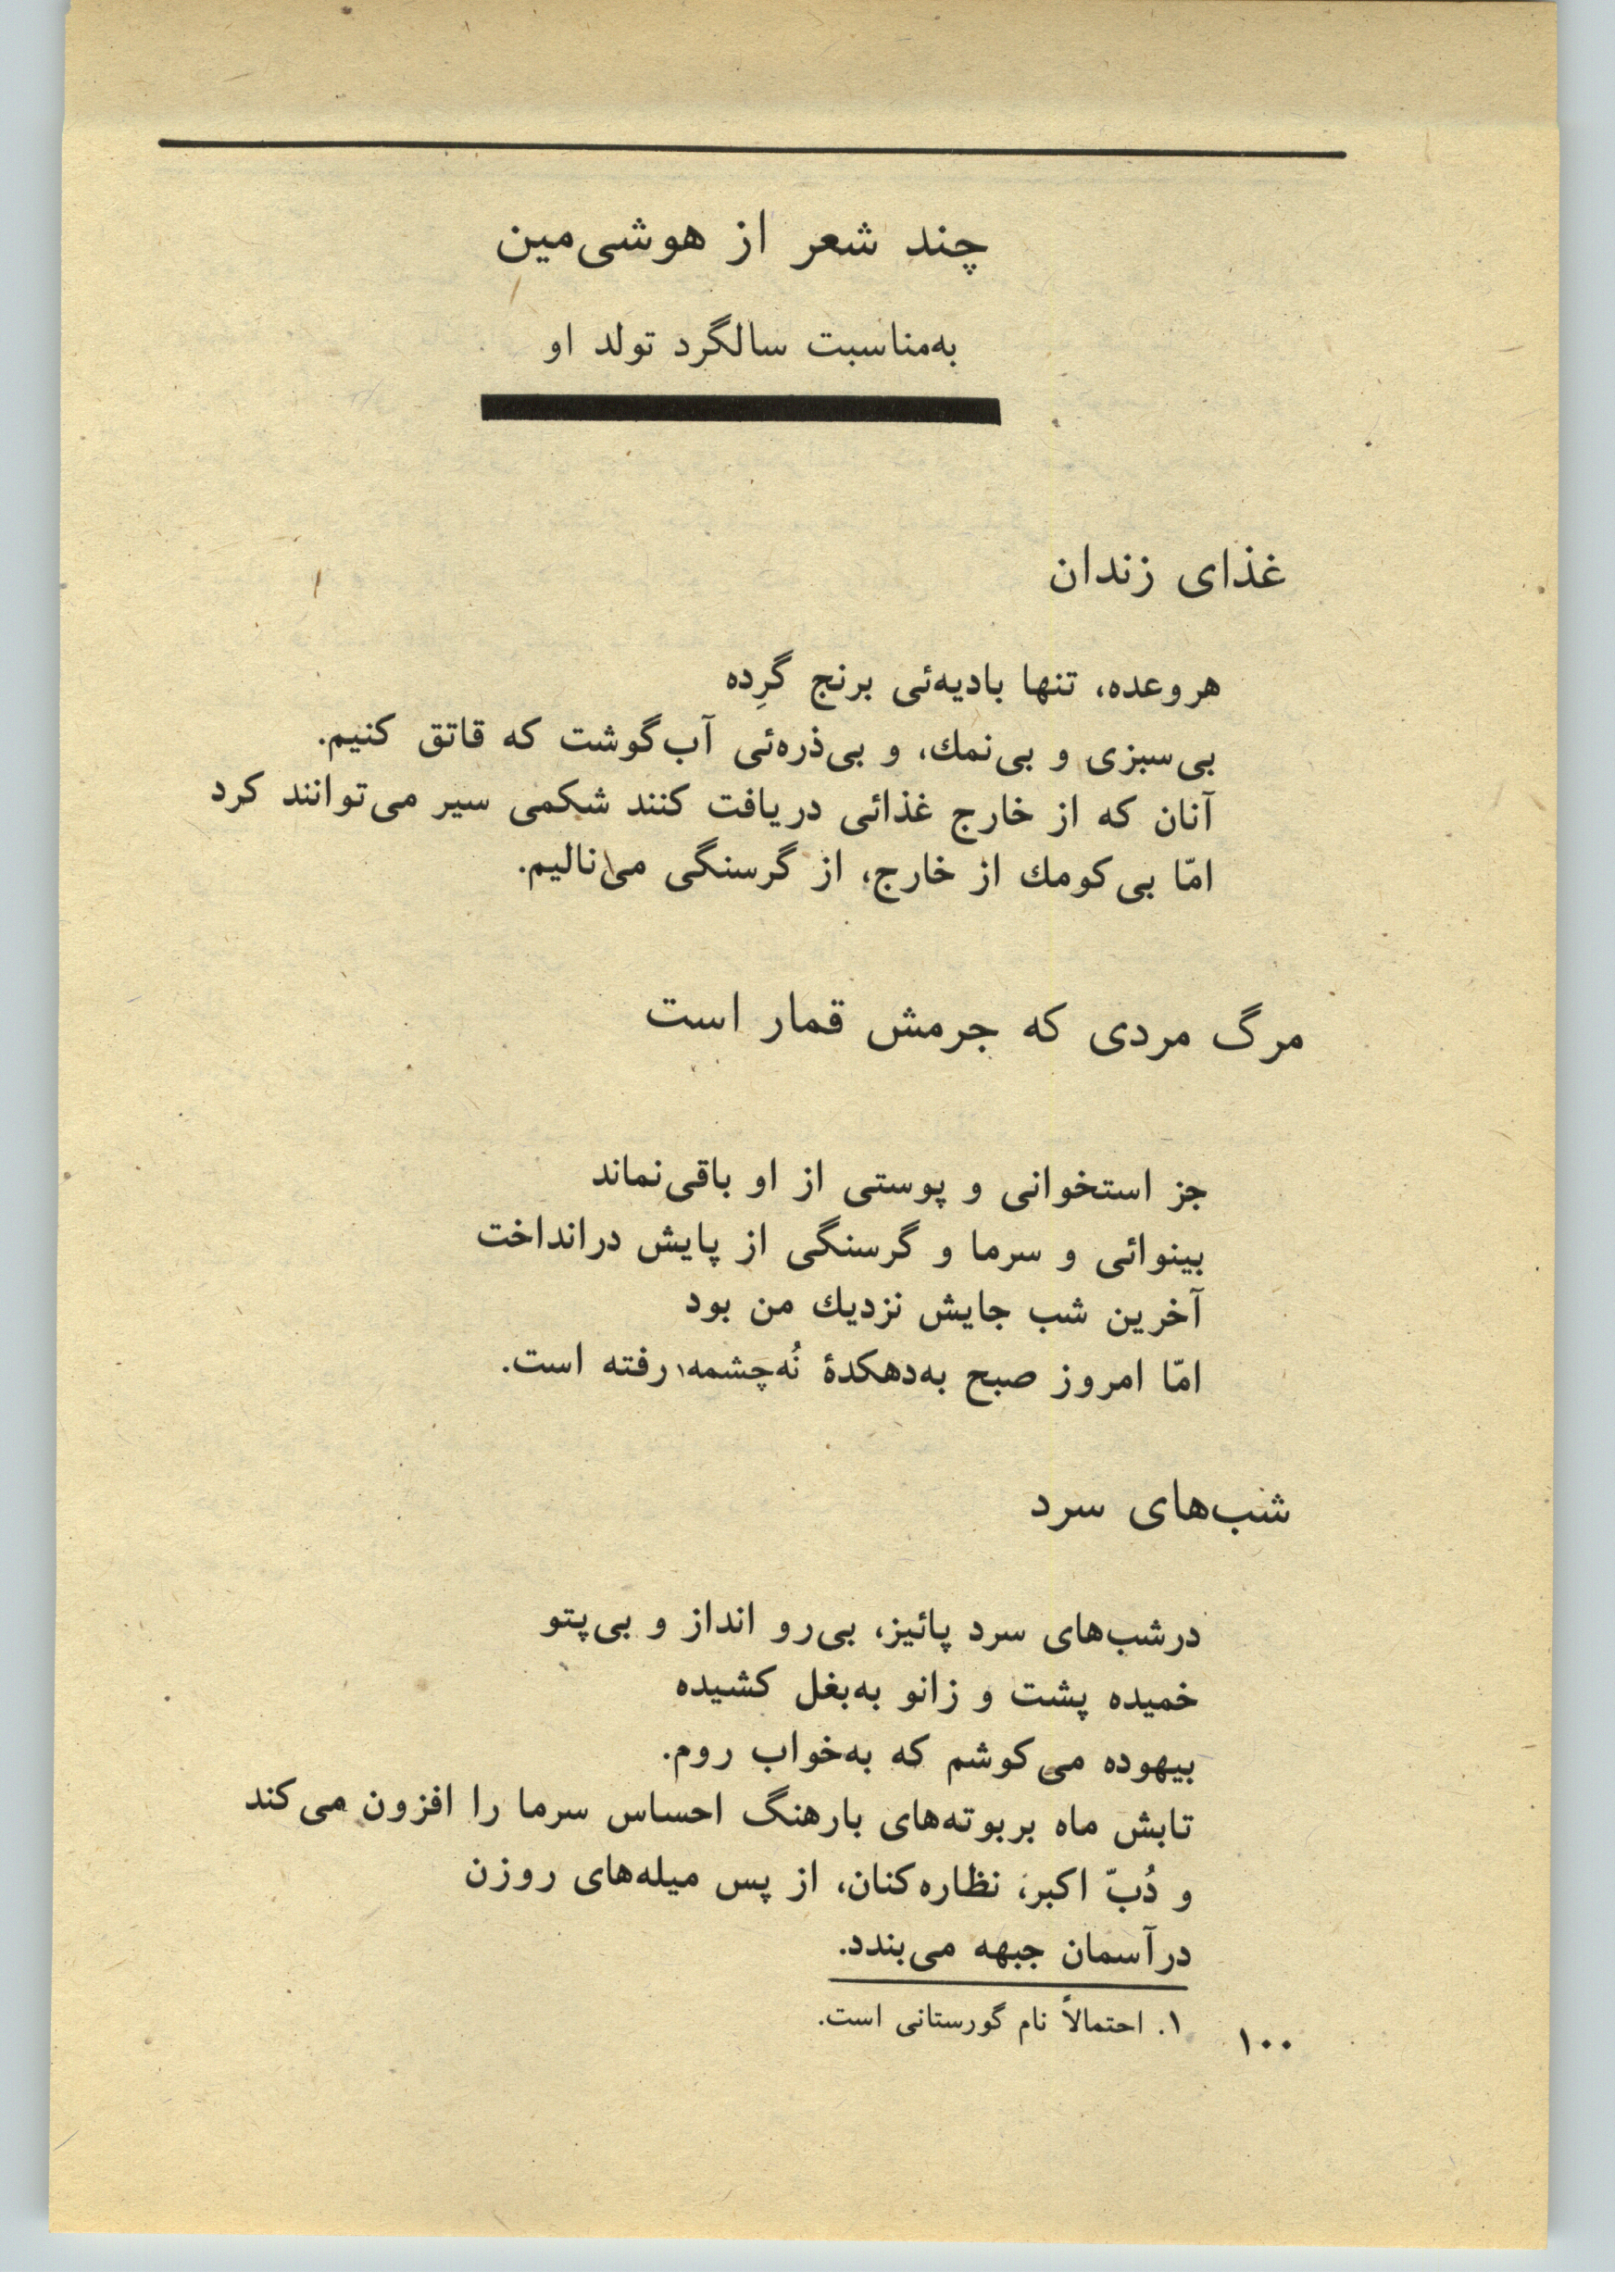 چند شعر از هوشی‌مین
به‌مناسبت سالگرد تولد او
غذای زندان
هروعده، تنها بادیه‌ئی برنج گرِده
بی‌سبزی و بی‌نمك، و بی‌ذره‌ئی آب‌گوشت که قاتق کنیم.
آنان که از خارج غذائی دریافت کنند شکمی سیر می‌توانند کرد
امّا بی‌کومك از خارج، از گرسنگی می‌نالیم.
مرگ مردی که جرمش قمار است
جز استخوانی و پوستی از او باقی‌نماند
بینوائی و سرما و گرسنگی از پایش درانداخت
آخرین شب جایش نزدیك من بود
امّا امروز صبح به‌دهکدهٔ نُه‌چشمه۱ رفته است.
شب‌های سرد
درشب‌های سرد پائیز، بی‌رو انداز و بی‌پتو
خمیده پشت و زانو به‌بغل کشیده
بیهوده می‌کوشم که به‌خواب روم.
تابش ماه بربوته‌های بارهنگ احساس سرما را افزون می‌کند
و دُبّ اکبر، نظاره‌کنان، از پس میله‌های روزن
درآسمان جبهه می‌بندد.
۱. احتمالاً نام گورستانی است.
۱۰۰